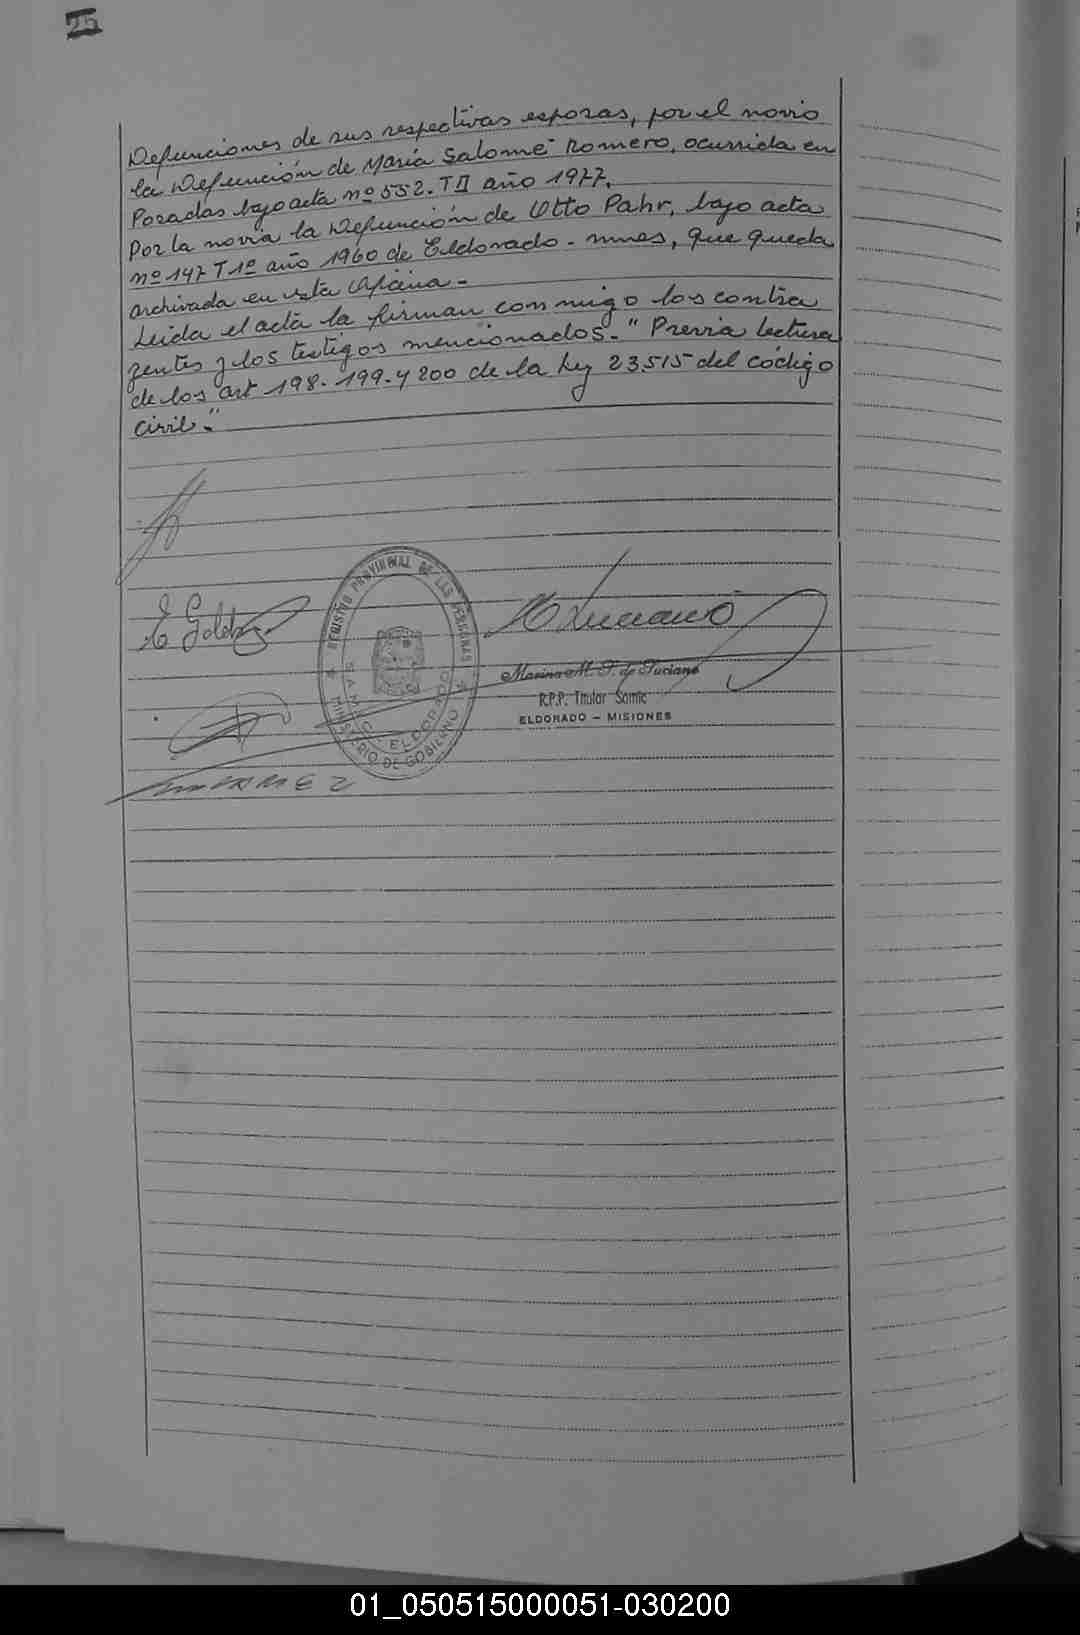 25
Defunciones de sus respectivas esposas, por el novio
la Defunción de María Salomé Romero, ocurrida en
Posadas bajo acta nº 552. T II año 1977.
Por la novia la Defunción de Otto Pahr, bajo acta
nº 147 T 1º año 1960 de Eldorado - mnes, que queda
archivada en esta Oficina -
Leida el acta la firman conmigo los contra
yentes y los testigos mencionados. "Previa lectura
de los art 198. 199. y 200 de la Ley 23.515 del código
civil."
REGISTRO PROVINCIAL DE LAS PERSONAS
SAMIC ELDORADO
MINISTERIO DE GOBIERNO
Marina M. F. de Luciano
R.P.P. Titular Samic
ELDORADO - MISIONES
01_050515000051-030200